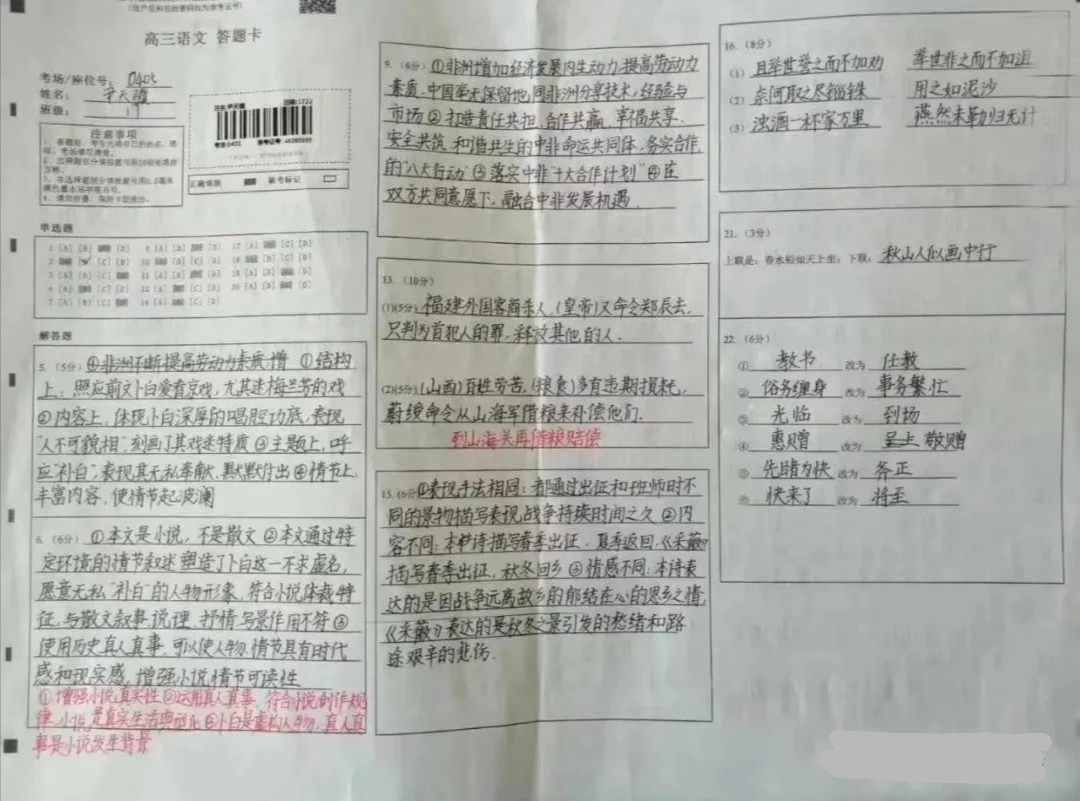 高三语文 答题卡
考场/座位号：0405
姓名：
班级：
注意事项
正确填涂
缺考标记
单选题
解答题
5.（5分）④非洲不断提高劳动力素质,增 ①结构
上：照应前文卜白爱看京戏，尤其迷梅兰芳的戏
②内容上，体现卜白深厚的唱腔功底，表现
“人不可貌相”，刻画了其戏迷特质③主题上，呼
应“补白”，表现其无私奉献，默默付出④情节上，
丰富内容，使情节起波澜
6.（6分）①本文是小说，不是散文②本文通过特
定环境的情节叙述塑造了卜白这一不求虚名，
愿意无私“补白”的人物形象，符合小说体裁特
征，与散文叙事说理，抒情写景作用不符③
使用历史真人真事，可以使人物，情节具有时代
感和现实感，增强小说情节可读性
①增强小说真实性②运用真人真事，符合小说创作规
律，小说是真实生活典型化③卜白是虚构人物，真人真
事是小说发生背景
9.（6分）①非洲增加经济发展内生动力，提高劳动力
素质，中国毫无保留地同非洲分享技术，经验与
市场②打造责任共担，合作共赢，幸福共享，
安全共筑，和谐共生的中非命运共同体，务实合作
的“八大行动”③落实中非“十大合作计划”④在
双方共同意愿下，融合中非发展机遇
13.（10分）
(1)(5分)福建外国客商杀人，(皇帝)又命令郑辰去，
只判为首犯人的罪，释放其他的人．
(2)(5分)(山西)百姓劳苦，(粮食)多有违期损耗，
蔚绶命令从山海军借粮来补偿他们．
到山海关再借粮赔偿
15.(6分)①表现手法相同：都通过出征和班师时不
同的景物描写表现战争持续时间之久②内
容不同：本诗描写春季出征，夏季返回，《采薇》
描写春季出征，秋冬回乡③情感不同：本诗表
达的是因战争远离故乡的郁结在心的思乡之情，
《采薇》表达的是秋冬之景引发的愁绪和路
途艰辛的悲伤．
16.（8分）
(1) 且举世誉之而不加劝 举世非之而不加沮
(2) 奈何取之尽锱铢 用之如泥沙
(3) 浊酒一杯家万里 燕然未勒归无计
21.（3分）
上联是：春水船如天上坐；下联：秋山人似画中行
22.（6分）
① 教书 改为 任教
② 俗务缠身 改为 事务繁忙
③ 光临 改为 到场
④ 惠赠 改为 敬赠
⑤ 先睹为快 改为 斧正
⑥ 快来了 改为 将至